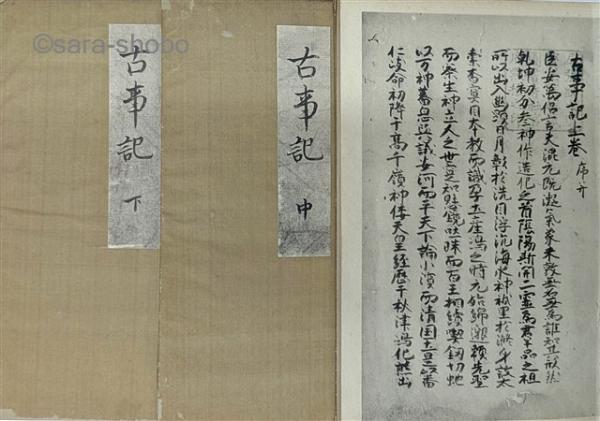 ©sara-shobo
古事記 中
古事記 下
古事記上巻 序并
臣安萬侶言夫混元既凝氣象未效無名無為誰知其形然
乾坤初分参神作造化之首陰陽斯開二霊為群品之祖
所以出入幽顕日月彰於洗目浮沉海水神祇呈於滌身故太
素杳冥因本教而識孕土産嶋之時元始綿邈頼先聖
而察生神立人之世寔知懸鏡吐珠而百王相續喫釼切蛇
以万神蕃息與議安河而平天下論小濱而清国土是以番
仁岐命初降于高千嶺神倭天皇経歴于秋津嶋化熊出